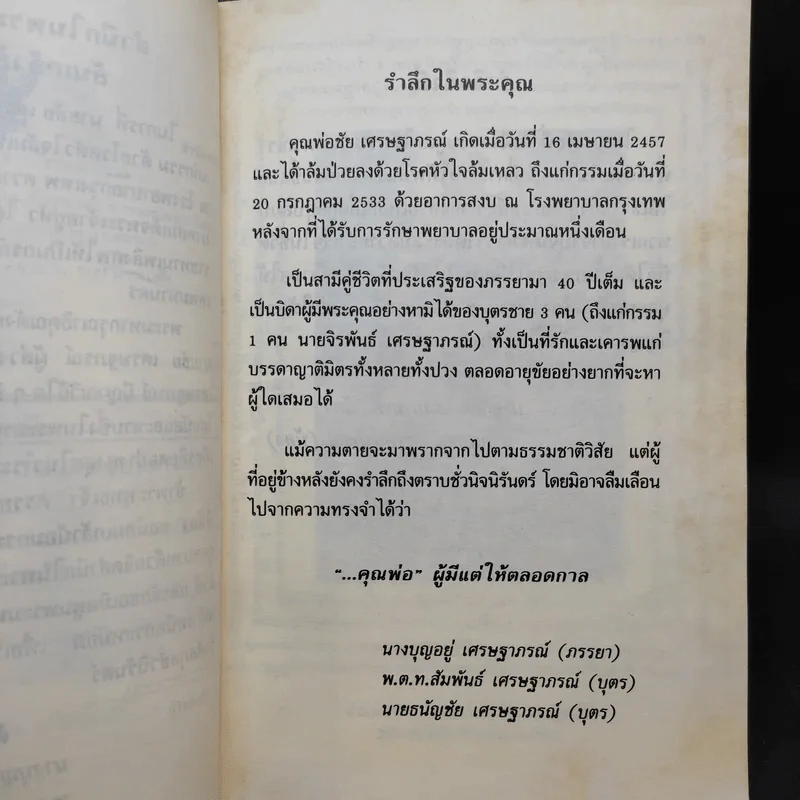 รำลึกในพระคุณ
คุณพ่อชัย เศรษฐาภรณ์ เกิดเมื่อวันที่ 16 เมษายน 2457
และได้าล้มป่วยลงด้วยโรคหัวใจล้มเหลว ถึงแก่กรรมเมื่อวันที่
20 กรกฎาคม 2533 ด้วยอาการสงบ ณ โรงพยาบาลกรุงเทพ
หลังจากที่ได้รับการรักษาพยาบาลอยู่ประมาณหนึ่งเดือน
เป็นสามีคู่ชีวิตที่ประเสริฐของภรรยามา 40 ปีเต็ม และ
เป็นบิดาผู้มีพระคุณอย่างหามิได้ของบุตรชาย 3 คน (ถึงแก่กรรม
1 คน นายจิรพันธ์ เศรษฐาภรณ์) ทั้งเป็นที่รักและเคารพแก่
บรรดาญาติมิตรทั้งหลายทั้งปวง ตลอดอายุขัยอย่างยากที่จะหา
ผู้ใดเสมอได้
แม้ความตายจะมาพรากจากไปตามธรรมชาติวิสัย แต่ผู้
ที่อยู่ข้างหลังยังคงรำลึกถึงตราบชั่วนิจนิรันดร์ โดยมิอาจลืมเลือน
ไปจากความทรงจำได้ว่า
"...คุณพ่อ" ผู้มีแต่ให้ตลอดกาล
นางบุญอยู่ เศรษฐาภรณ์ (ภรรยา)
พ.ต.ท.สัมพันธ์ เศรษฐาภรณ์ (บุตร)
นายธนัญชัย เศรษฐาภรณ์ (บุตร)